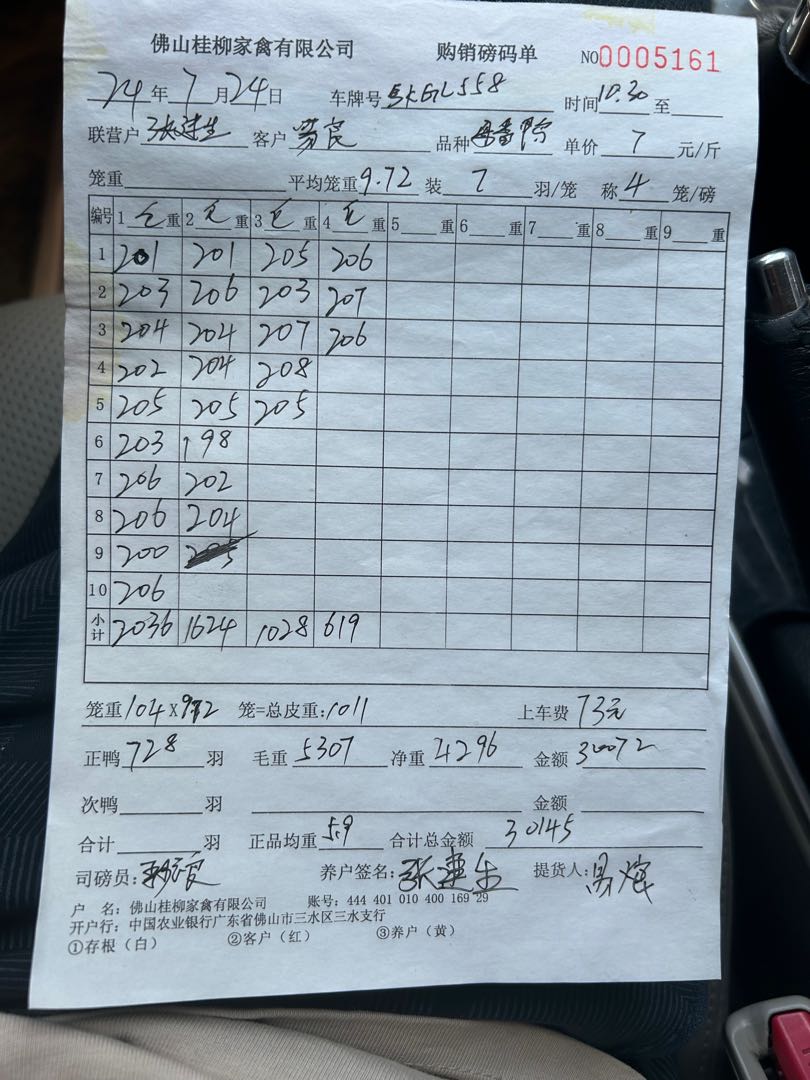 佛山桂柳家禽有限公司 购销磅码单 NO0005161
24年7月24日 车牌号 558 时间10.30至
联营户 张建生 客户 品种 番鸭 单价 7 元/斤
笼重 平均笼重9.72 装 7 羽/笼 称 4 笼/磅
编号 1 毛 重 2 毛 重 3 毛 重 4 毛 重 5 重 6 重 7 重 8 重 9 重
1 201 201 205 206
2 203 206 203 207
3 204 204 207 206
4 202 204 208
5 205 205 205
6 203 198
7 206 202
8 206 204
9 200 205
10 206
小计 2036 1624 1028 619
笼重104X9.72 笼=总皮重:1011 上车费 73元
正鸭 728 羽 毛重 5307 净重 4296 金额 30072
次鸭 羽 金额
合计 羽 正品均重 5.9 合计总金额 30145
司磅员: 养户签名: 张建生 提货人:
户 名: 佛山桂柳家禽有限公司 账号: 444 401 010 400 169 29
开户行: 中国农业银行广东省佛山市三水区三水支行
①存根(白) ②客户(红) ③养户(黄)